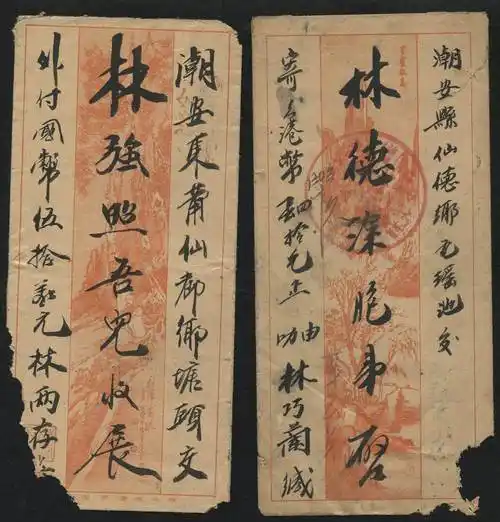 潮安東莆仙都鄉塘頭交
林強照吾兒收展
外付國幣伍拾萬元林兩存
潮安縣仙德鄉瑤池交
林德深胞弟啓
寄港幣四拾元上
由
林巧蘭緘